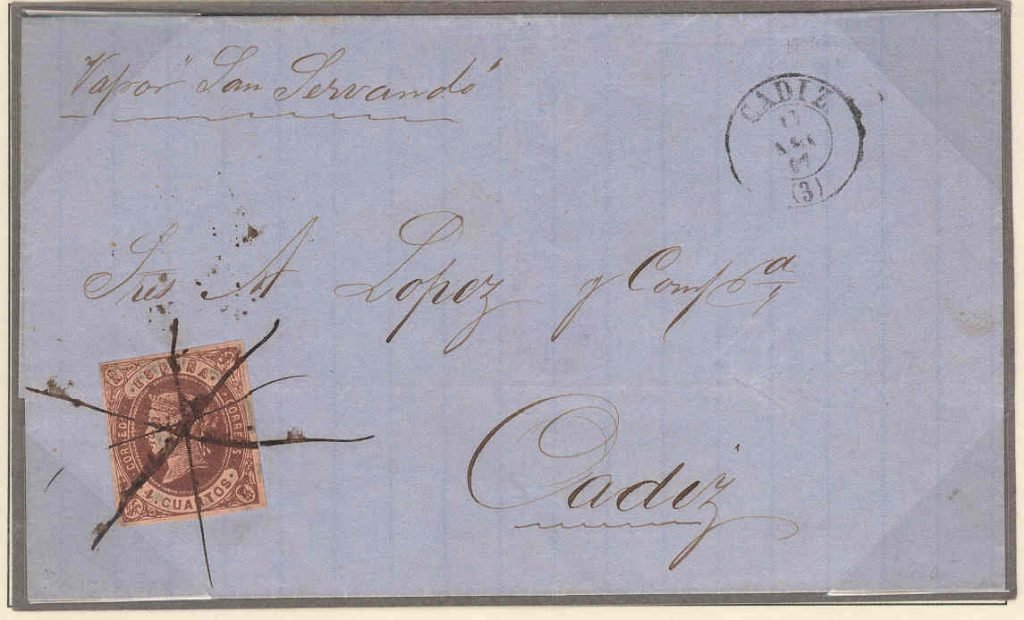 Vapor "San Servando"
CADIZ
(3)
Sres A Lopez y Compª
ESPAÑA
CORREOS
CORREOS
4. CUARTOS.
Cadiz